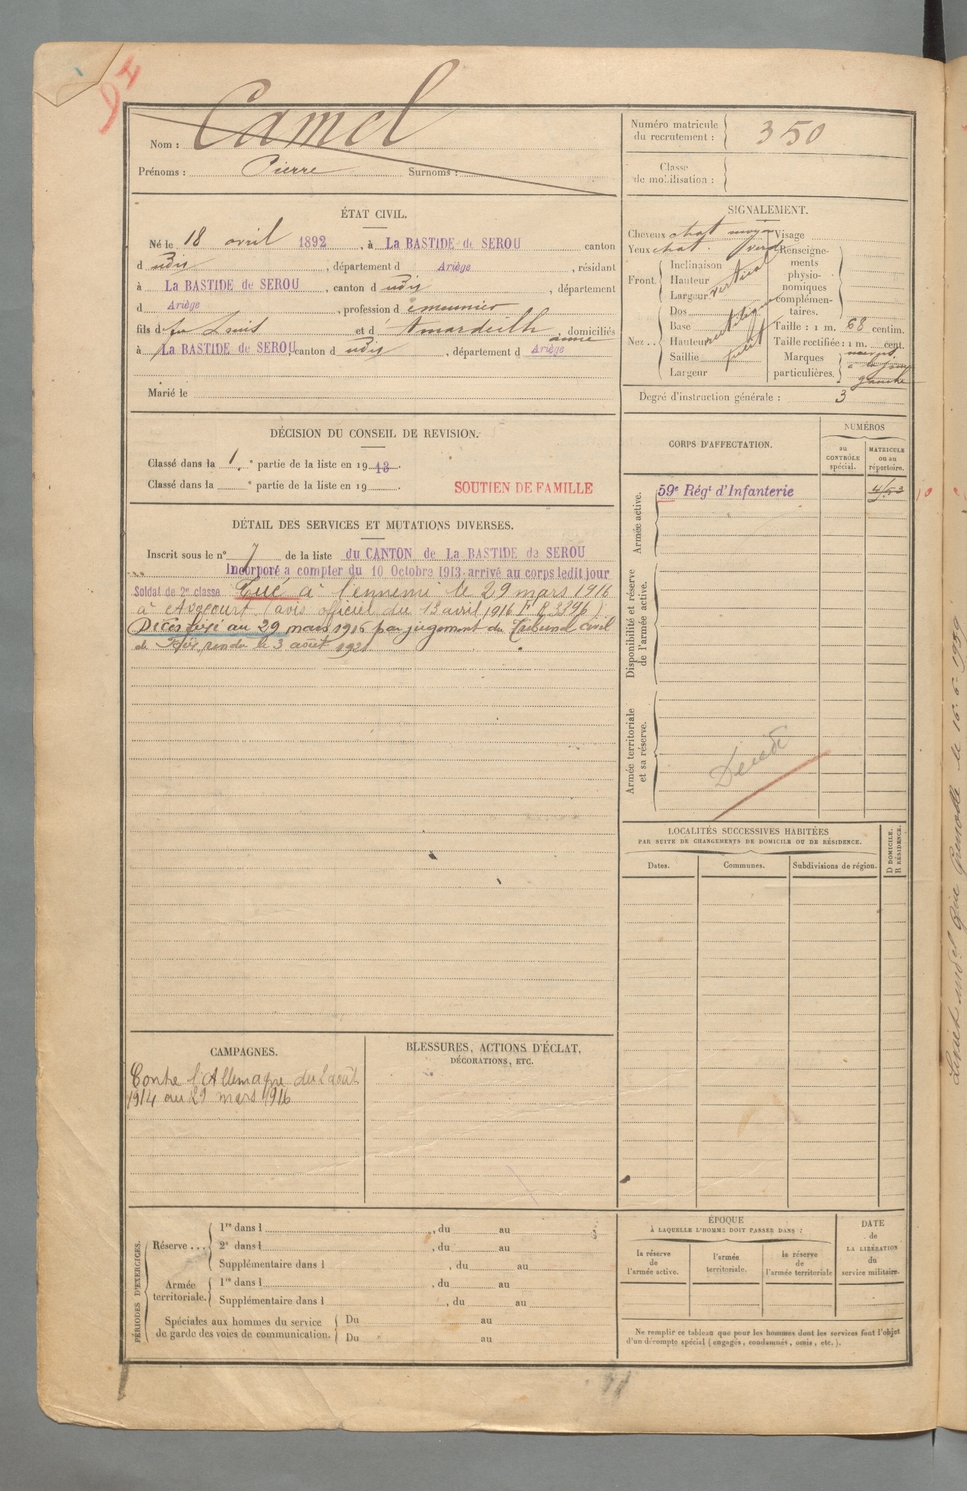 Nom : Camel
Prénoms : Pierre Surnoms :
Numéro matricule du recrutement : 350
Classe de mobilisation :
ÉTAT CIVIL.
Né le 18 avril 1892, à La BASTIDE de SEROU canton
d udis, département d Ariège, résidant
à La BASTIDE de SEROU, canton d udis, département
d Ariège, profession d meunier
fils de feu Louis et d' Amardeilh anne, domiciliés
à La BASTIDE de SEROU, canton d udis, département d Ariège
Marié le
DÉCISION DU CONSEIL DE REVISION.
Classé dans la 1.e partie de la liste en 1913.
Classé dans la e partie de la liste en 19 .
SOUTIEN DE FAMILLE
DÉTAIL DES SERVICES ET MUTATIONS DIVERSES.
Inscrit sous le n° 7 de la liste du CANTON de La BASTIDE de SEROU
Incorporé a compter du 10 Octobre 1913 arrivé au corps ledit jour
Soldat de 2e classe. Tué à l'ennemi le 29 mars 1916
à (avis officiel du 13 avril 1916
Décès fixé au 29 mars 1916 par jugement du Tribunal Civil
de Foix, rendu le 3 août
CAMPAGNES.
Contre l'Allemagne du 2 août
1914 au 29 mars 1916
BLESSURES, ACTIONS D'ÉCLAT,
DÉCORATIONS, ETC.
PÉRIODES D'EXERCICES.
Réserve . . .
1re dans l , du au
2e dans l , du au
Supplémentaire dans l , du au
Armée territoriale.
1re dans l , du au
Supplémentaire dans l , du au
Spéciales aux hommes du service
de garde des voies de communication.
Du au
Du au
SIGNALEMENT.
Cheveux chat moyen
Yeux chat. verd
Front.
Inclinaison
Hauteur
Largeur
vertical
Nez . .
Dos
Base
Hauteur
Saillie
Largeur
rectiligne
petit
Visage
Renseignements physionomiques complémentaires.
Taille : 1 m. 68 centim.
Taille rectifiée : 1 m. cent.
Marques particulières.
gauche
Degré d'instruction générale : 3
CORPS D'AFFECTATION.
NUMÉROS
au CONTRÔLE spécial.
MATRICULE ou au répertoire.
Armée active.
59e Régt d'Infanterie
Disponibilité et réserve de l'armée active.
Armée territoriale et sa réserve.
LOCALITÉS SUCCESSIVES HABITÉES
PAR SUITE DE CHANGEMENTS DE DOMICILE OU DE RÉSIDENCE.
Dates.
Communes.
Subdivisions de région.
D DOMICILE.
R RÉSIDENCE.
ÉPOQUE
À LAQUELLE L'HOMME DOIT PASSER DANS :
la réserve de l'armée active.
l'armée territoriale.
la réserve de l'armée territoriale
DATE de LA LIBÉRATION du service militaire.
Ne remplir ce tableau que pour les hommes dont les services font l'objet
d'un décompte spécial (engagés, condamnés, omis, etc.).